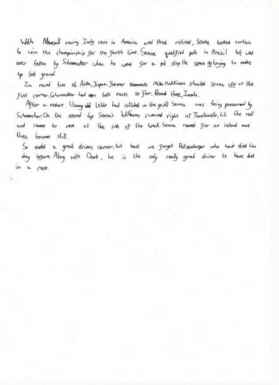 With Mansell racing Indy cars in America and Prost retired, Senna looked certain
to win the championship for the fourth time. Senna qualified pole in Brazil but was
over taken by Schumacher when he went for a pit stop the Senna trying to make
up lost ground
In round two at Aida, Japan former teammate Mika Hakkinen shunted Senna off at the
first corner. Schumacher had won both races so far. Round three, Imola.
After a restart, Lehto had stalled on the grid Senna was being pressured by
Schumacher. On the second lap Senna's Williams steered right at Tamburello, hit the wall
and came to rest at the side of the track. Senna moved for an instant and
then became still.
So ended a great drivers career, but least we forget Ratzenberger who had died the
day before. Along with Clark, he is the only really great driver to have died
in a race.